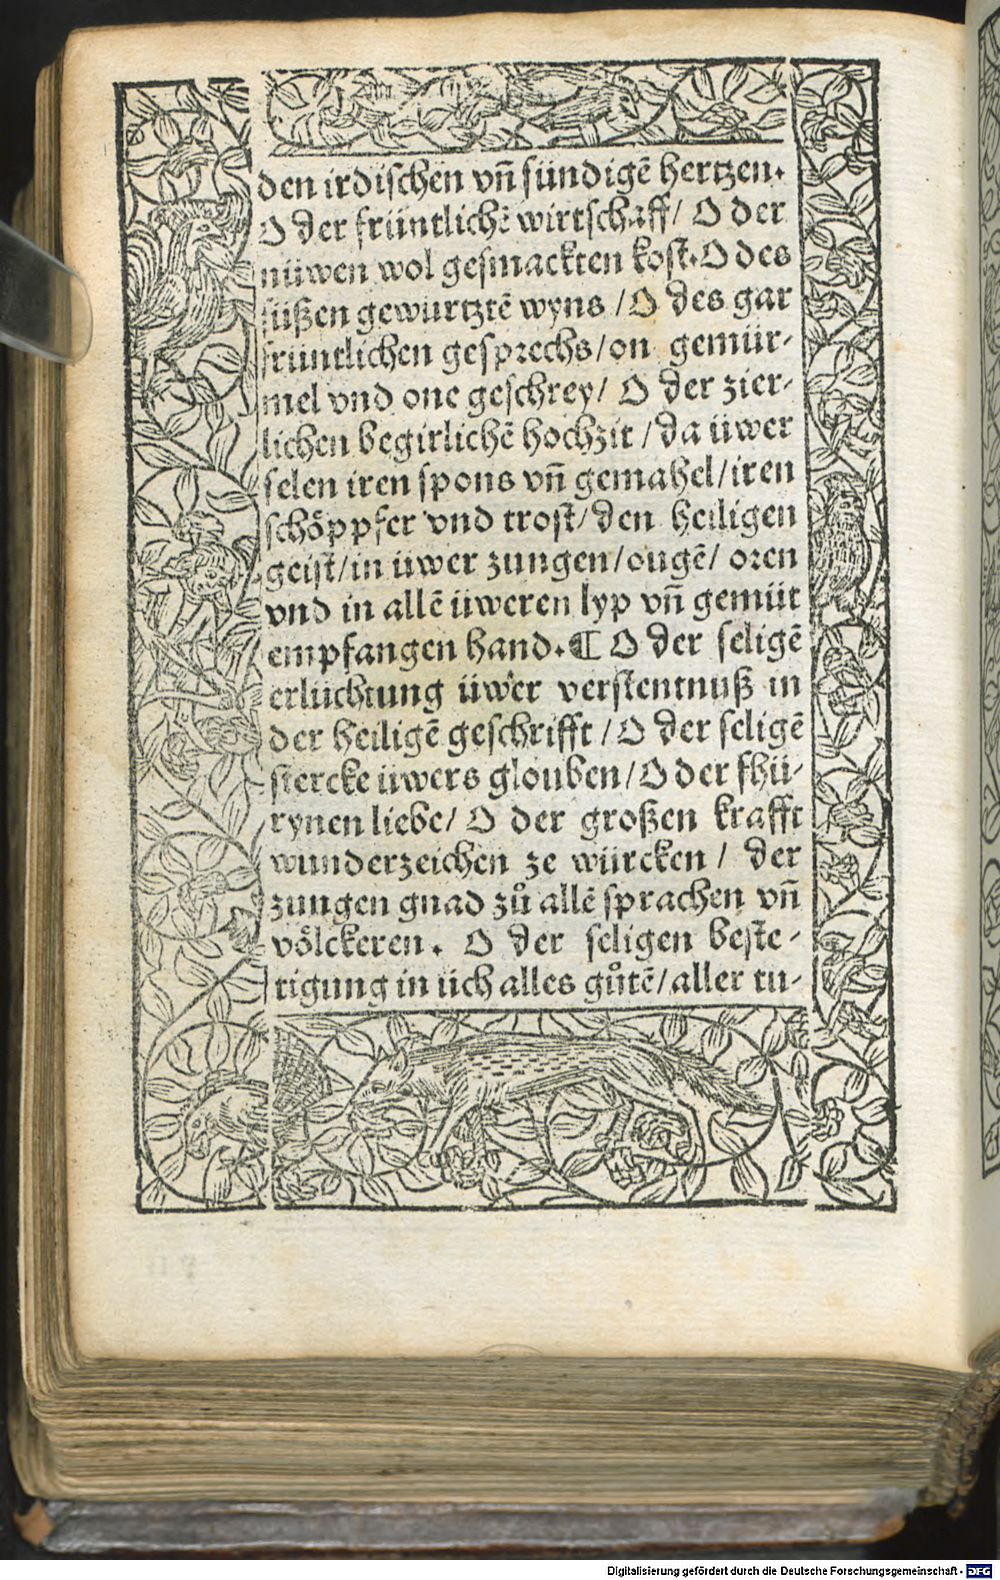 den irdischen vn̄ sündigē hertzen.
O der früntlichē wirtschaff/ O der
nüwen wol gesmackten kost. O des
süßen gewürtztē wyns / O des gar
früntlichen gesprechs/on gemür-
mel vnd one geschrey/ O der zier-
lichen begirlichē hochzit / da üwer
selen iren spons vn̄ gemahel/iren
schöppfer vnd trost/den heiligen
geist/in üwer zungen/ougē/ oren
vnd in allē üweren lyp vn̄ gemüt
empfangen hand.¶ O der seligē
erlüchtung üwer verstentnuß in
der heiligē geschrifft / O der seligē
stercke üwers glouben/O der fhü-
rynen liebe/ O der großen krafft
wunderzeichen ze würcken / der
zungen gnad zů allē sprachen vn̄
völckeren. O der seligen beste-
tigung in üch alles gůtē/aller tu-
Digitalisierung gefördert durch die Deutsche Forschungsgemeinschaft - DFG